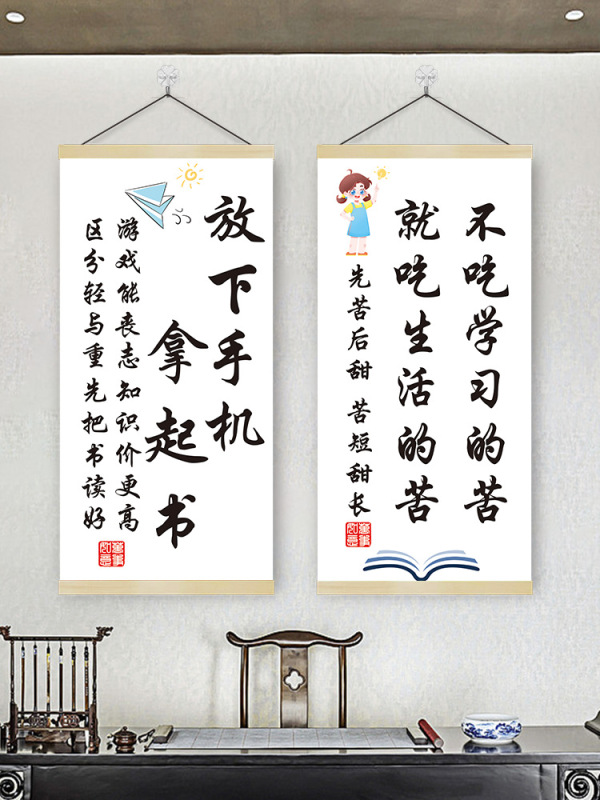 不吃学习的苦
就吃生活的苦
先苦后甜 苦短甜长
放下手机
拿起书
游戏能丧志知识价更高
区分轻与重先把书读好